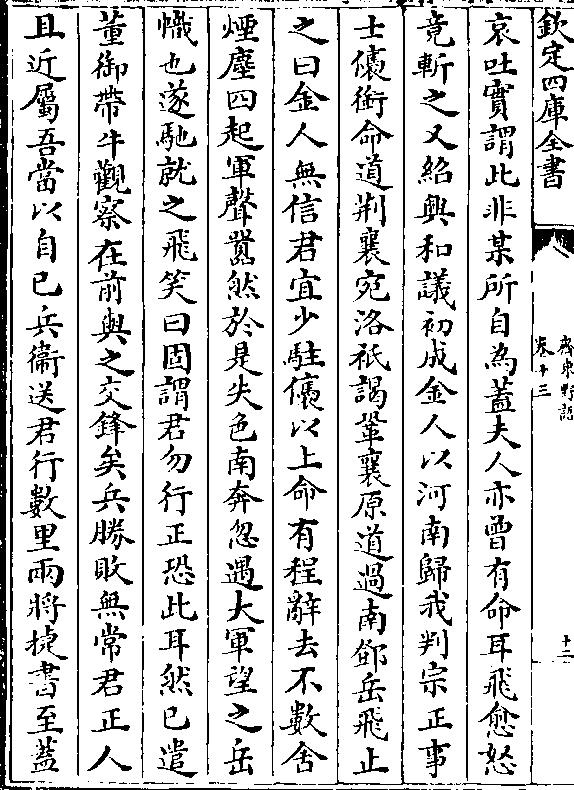 欽定四庫全書
齊東野語
卷十三
十二
哀吐實謂此非某所自為蓋夫人亦曾有命耳飛愈怒
竟斬之又紹興和議初成金人以河南歸我判宗正事
士㒟銜命道荆襄宛洛祗謁鞏襄原道過南鄧岳飛止
之曰金人無信君宜少駐㒟以上命有程辭去不數舍
煙塵四起軍聲囂然於是失色南奔忽遇大軍望之岳
幟也遂馳就之飛笑曰固謂君勿行正恐此耳然已遣
董御帶牛觀察在前與之交鋒矣兵勝敗無常君正人
且近屬吾當以自己兵衞送君行數里兩將捷書至蓋